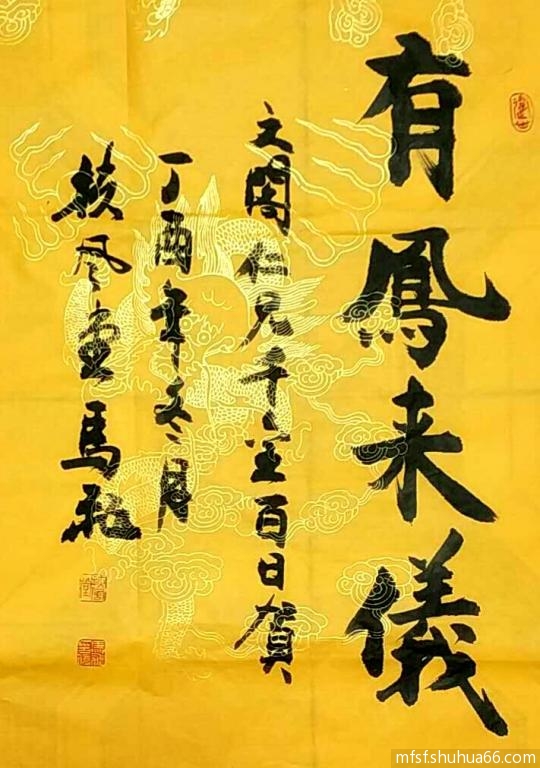 有鳳来儀
文閣仁兄千金百日賀
丁酉年冬月
扶风堂馬
mfsfshuhua66.com